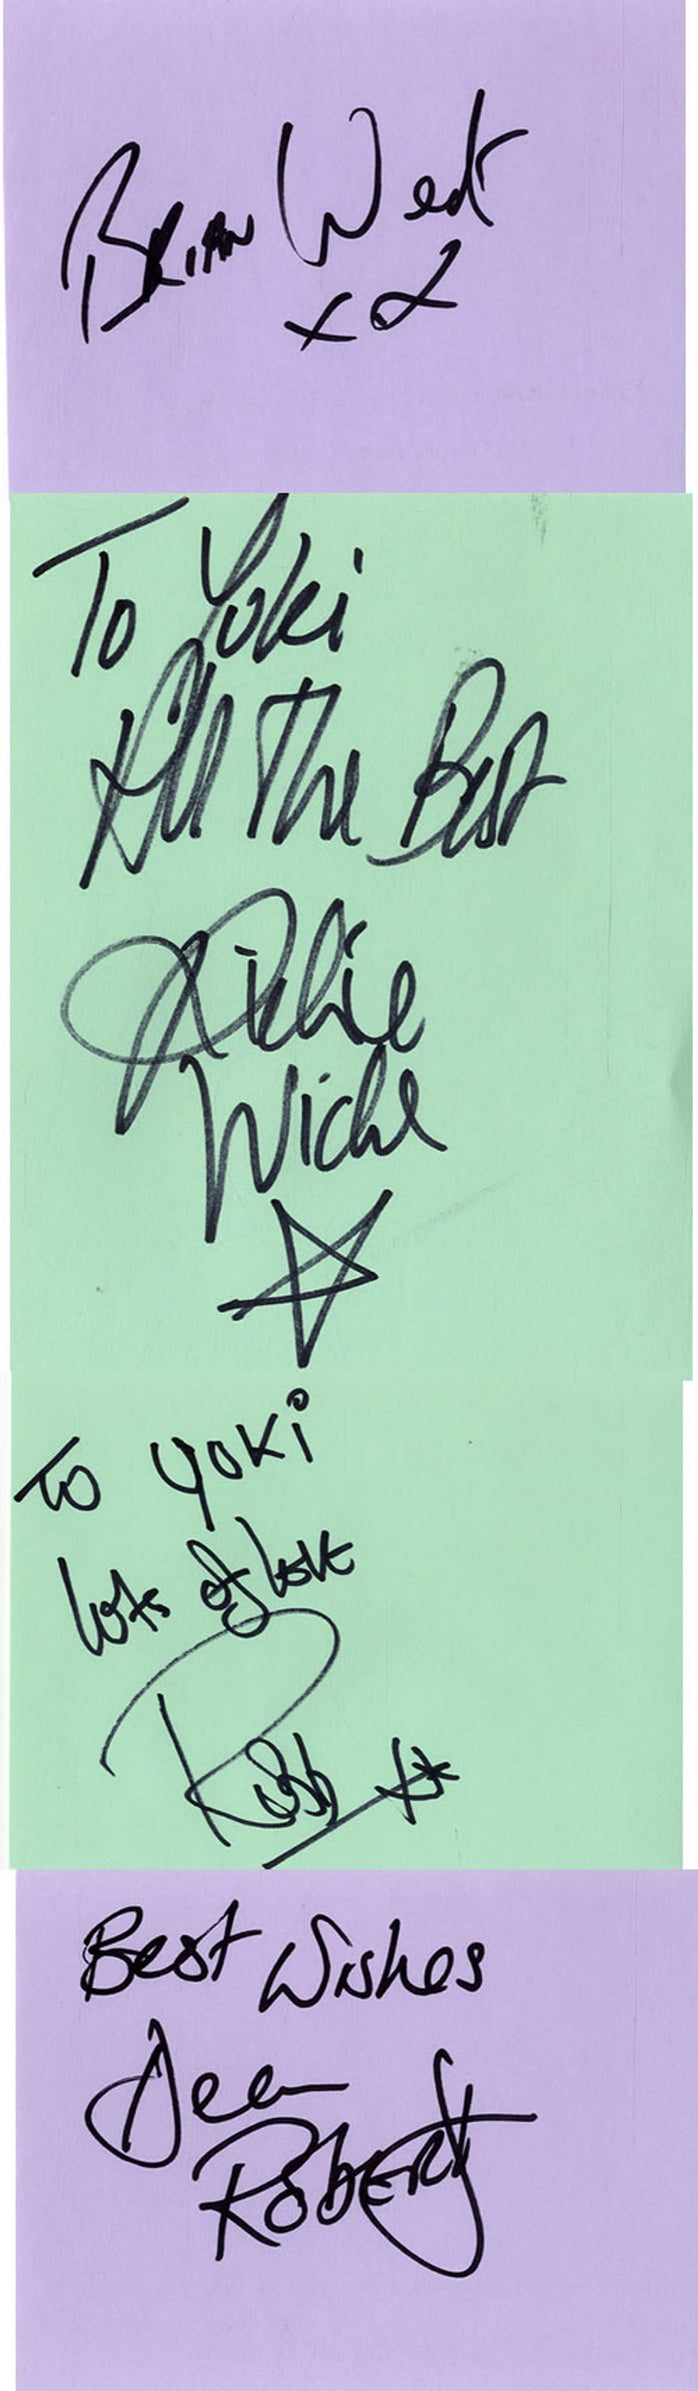 Brian West
xx
To Yuki
All The Best
Richie
To Yuki
lots of love
Robb xx
Best Wishes
Dean
Roberts